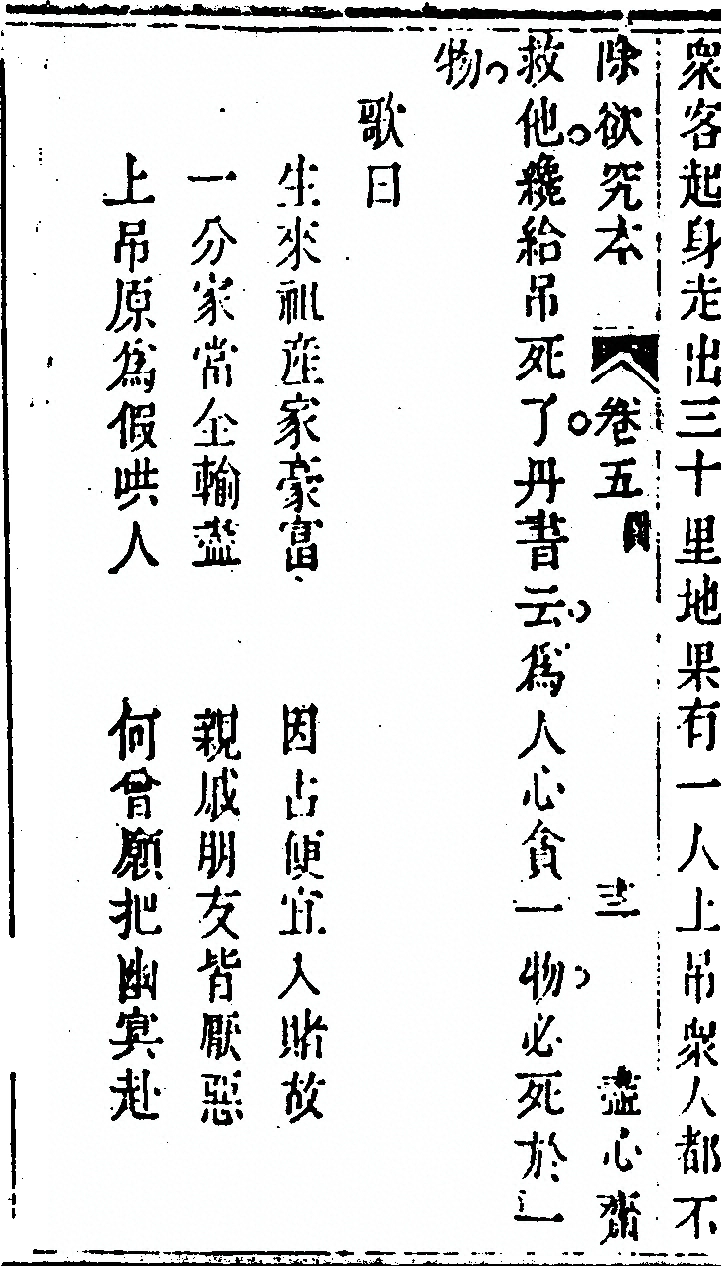 衆客起身走出三十里地果有一人上吊衆人都不
除欲究本 卷五 三 盡心齋
救他纔給吊死了丹書云爲人心貪一物必死於一
物
歌曰
生來祖產家豪富 因占便宜入賭故
一分家當全輸盡 親戚朋友皆厭惡
上吊原爲假哄人 何曾願把幽冥赴